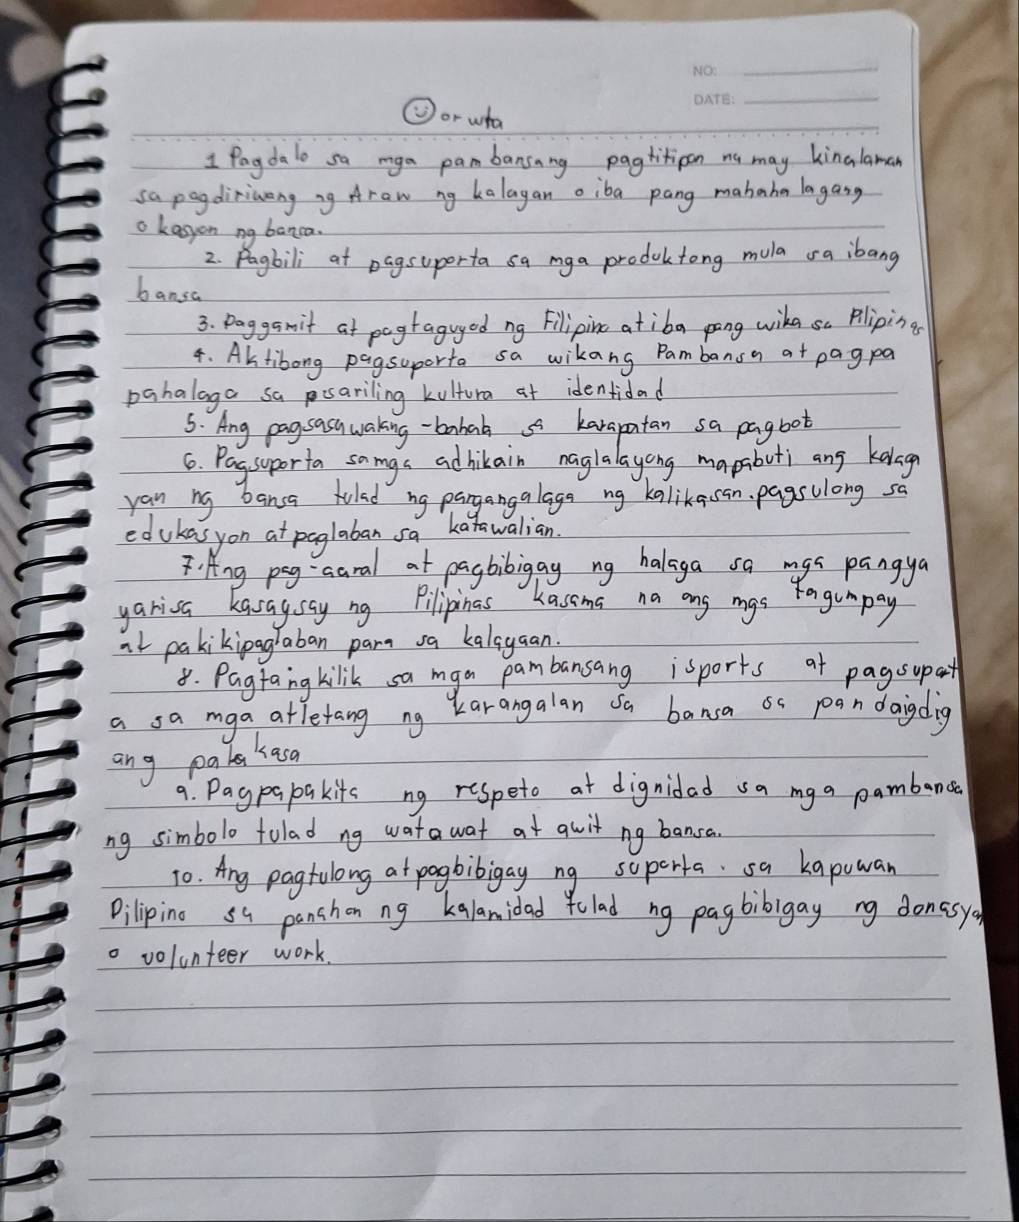 NO:
DATE:
☺ or wta
1 Pagdalo sa mga pambansang pagtitipon na may kinalaman
sa pagdiriwang ng Araw ng kalayan o iba pang mahahalagang
okasyon ng bansa.
2. Pagbili at pagsuporta sa mga produktong mula sa ibang
bansa
3. Paggamit at pagtaguyod ng Filipino at iba pang wika sa Pilipinas
4. Aktibong pagsuporta sa wikang Pambansa at pagpa
pahalaga sa sariling kultura at identidad
5. Ang pagsasawalang-bahab sa karapatan sa pagbot
6. Pagsuporta sa mga adhikain naglalayong mapabuti ang kalaga
yan ng bansa tulad ng pangangalaga ng kalikasan. pagsulong sa
edukasyon at paglaban sa katawalian.
7. Ang pag-aaral at pagbibigay ng halaga sa mga pangya
yari sa kasaysay ng Pilipinas kasama na ang mga tagumpay
at pakikipaglaban para sa kalayaan.
8. Pagtangkilik sa mga pambansang isports at pagsuport
a sa mga atletang ng karangalan sa bansa sa pandaigdig
ang palakasa
9. Pagpapakita ng respeto at dignidad sa mga pambansa
ng simbolo tulad ng watawat at awit ng bansa.
10. Ang pagtulong at pagbibigay ng suporta. sa kapuwan
Pilipino sa panahon ng kalamidad tulad ng pagbibigay ng donasyon
o volunteer work.